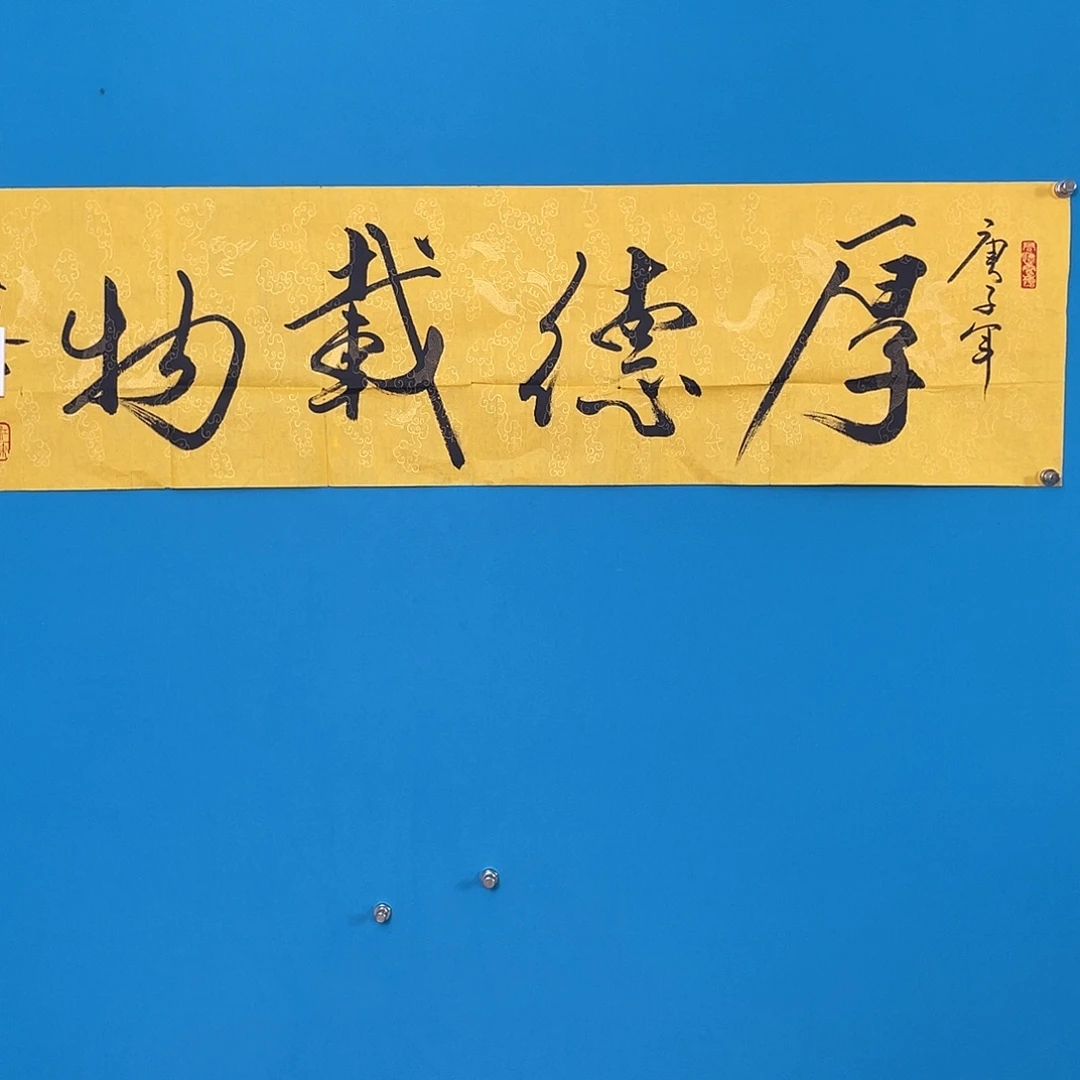 庚子年
厚德載物